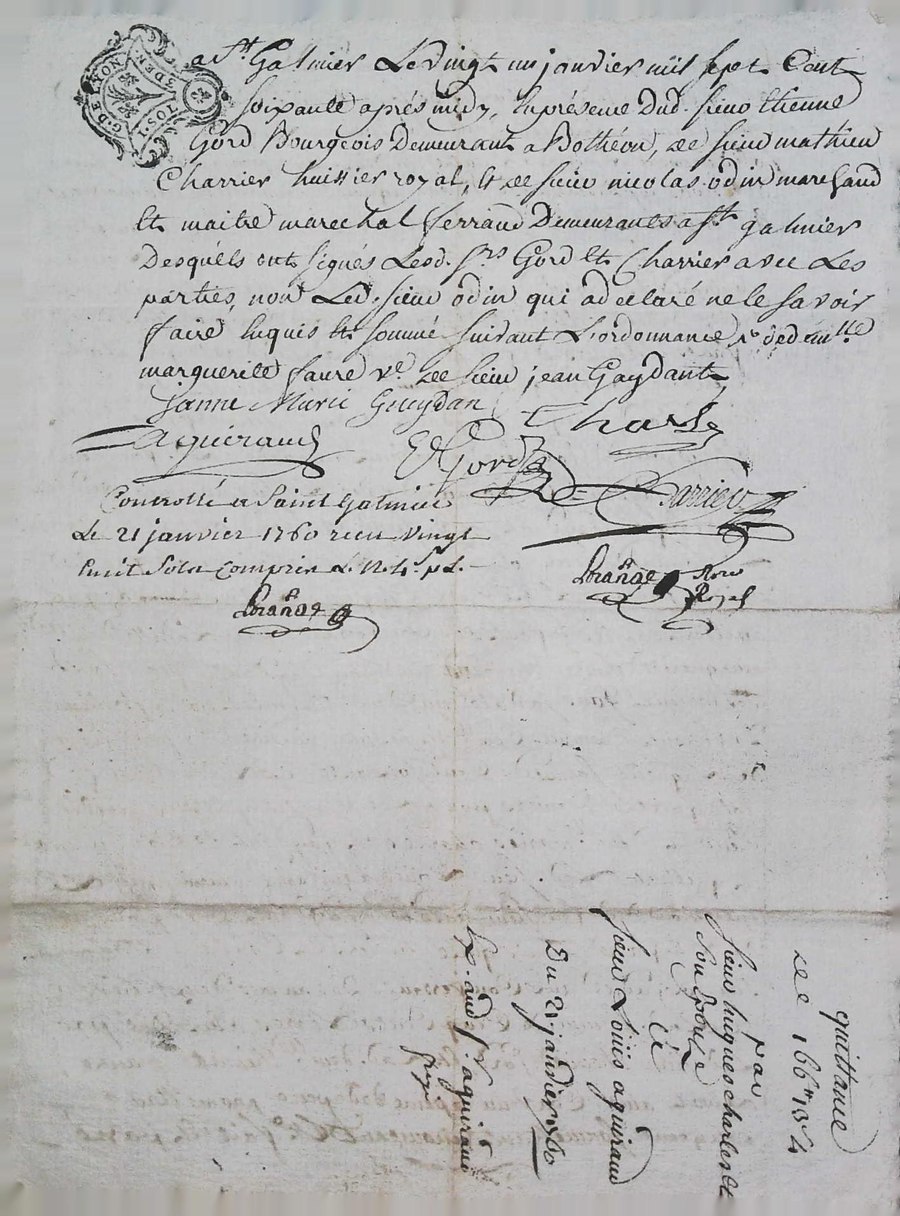 G. DE LYON
a St Galmier Le vingt un janvier mil sept Cent
soixante après midy, En présence Dud. sieur Etienne
Gord Bourgeois Demeurant a Bothéon, de sieur mathieu
Charrier huissier royal, Et de sieur nicolas odin marchand
Et maitre marechal ferrand Demeurants a St galmier
Desquels ont signés Lesd. srs Gord Et Charrier avec Les
parties, non Led. sieur odin qui a declaré ne le savoir
faire Enquis Et sommé suivant L'ordonnance,
marguerite faure ve. de sieur jean Gaydant
Janne Marie Gueydan Charle
Aguiraud E Gord Charrier
Controllé a Saint Galmier
Le 21 janvier 1760 reçu vingt
huit Sols Compris Le
Lorange
Lorange Nore
Royal
quittance
de 166ᵗᵗ 13ˢ 4
par
sieur hugues charles Et
son Epouze
a
sieur Louis aguiraud
Du 21 janvier 1760
Ex. aud. sr. aguiraud